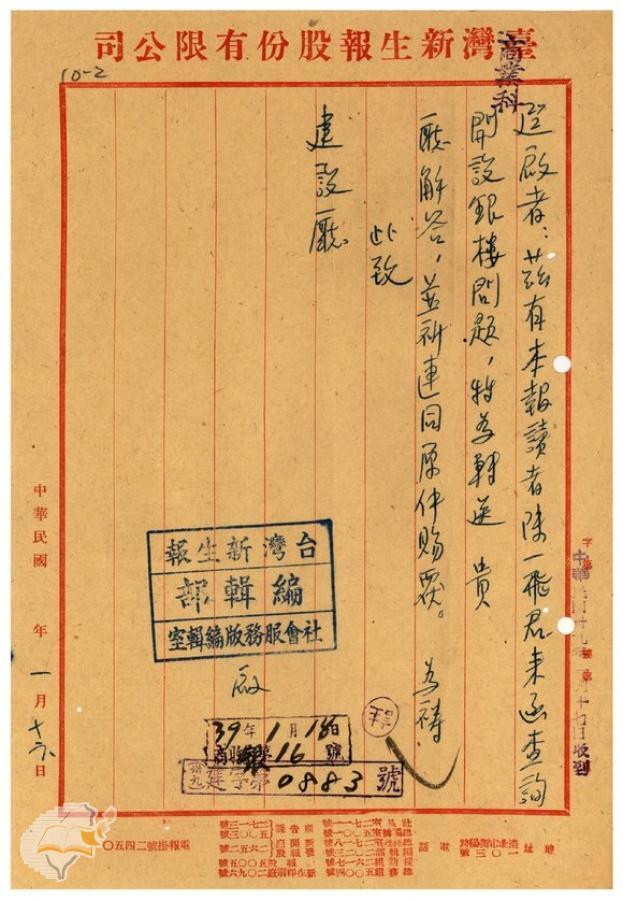 臺灣新生報股份有限公司
商業科
10-2
逕啟者:茲有本報讀者陳一飛君來函查詢
開設銀樓問題,特為轉送 貴
廳解答,並祈連同原件賜覆。為禱
此致
建設廳
台灣新生報
編輯部
社會服務版編輯室
啟
中華民國 年一月十六日
39年1月18日
16號
建字第0883號
電報掛號二四五〇